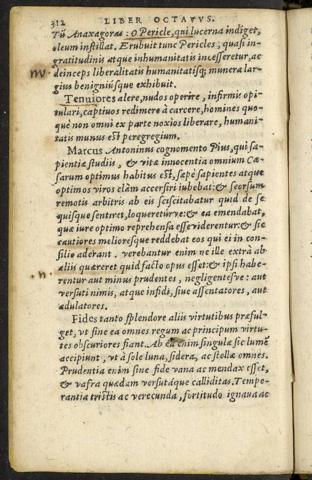 312 LIBER OCTAVVS.
Tũ Anaxagoras: o Pericle, qui lucerna indiget,
oleum instillat. Erubuit tunc Pericles, quasi in-
gratitudinis atque inhumanitatis incesseretur, ac
deinceps liberalitatis humanitatisq; munera lar-
gius benigniusque exhibuit.
Tenuiores alere, nudos operire, infirmis opi-
tulari, captiuos redimere à carcere, homines quo-
que non omni ex parte noxios liberare, humani-
tatis munus est peregregium.
Marcus Antoninus cognomento Pius, qui sa-
pientiæ studiis, & vitæ innocentia omnium Cæ-
sarum optimus habitus est, sæpe sapientes atque
optimos viros clàm accersiri iubebat: & seorsum
remotis arbitris ab eis sciscitabatur quid de se
quisque sentiret, loqueretúrve: & ea emendabat,
quæ iure optimo reprehensa esse viderentur: & sic
cautiores melioresque reddebat eos qui ei in con-
silio aderant. verebantur enim ne ille extrà ab
aliis quæreret quid facto opus esset: & ipsi habe-
rentur aut minus prudentes, negligentesve: aut
versuti nimis, atque infidi, siue assentatores, aut
adulatores.
Fides tanto splendore aliis virtutibus præful-
get, vt sine ea omnes regum ac principum virtu-
tes obscuriores fiant. Ab ea enim singulæ sic lumẽ
accipiunt, vt à sole luna, sidera, ac stellæ omnes.
Prudentia enim sine fide vana ac mendax esset,
& vafra quædam versutáque calliditas. Tempe-
rantia tristis ac verecunda, fortitudo ignaua ac